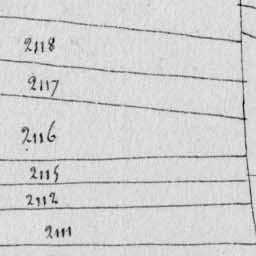 2118
2117
2116
2115
2112
2111